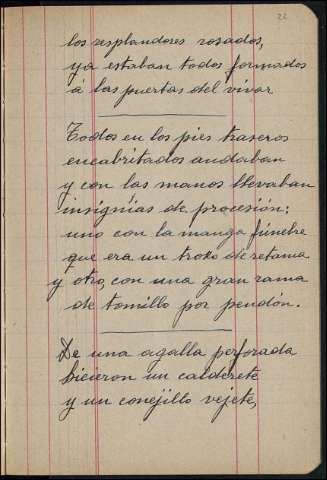 22
los resplandores rosados,
ya estaban todos formados
á las puertas del vivar
Todos en los pies traseros
encabritados andaban
y con las manos llevaban
insignias de procesión;
uno con la manga fúnebre
que era un trozo de retama
y otro, con una gran rama
de tomillo por pendón.
De una agalla perforada
hicieron un calderete
y un conejillo vejete,